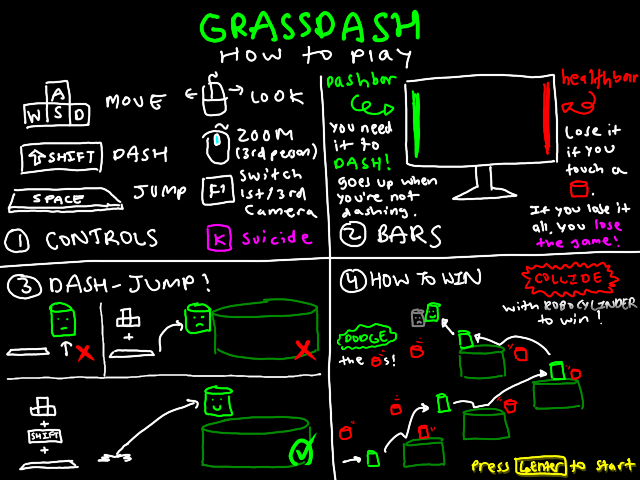 GRASSDASH
How to play
A
W S D
MOVE
LOOK
⇧SHIFT
DASH
ZOOM
(3rd person)
SPACE
JUMP
F1
Switch
1st/3rd
Camera
① CONTROLS
K
Suicide
Dashbar
healthbar
You need
it to
DASH!
goes up when
you're not
dashing.
Lose it
if you
touch a
.
If you lose it
all, you lose
the game!
② BARS
③ DASH-JUMP!
+
+
SHIFT
+
④ HOW TO WIN
COLLIDE
with ROBOCYLINDER
to win!
DODGE
the s!
press ENTER to start